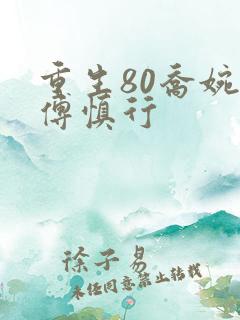 重生80乔婉
傅慎行
徐子易
未经同意禁止转载